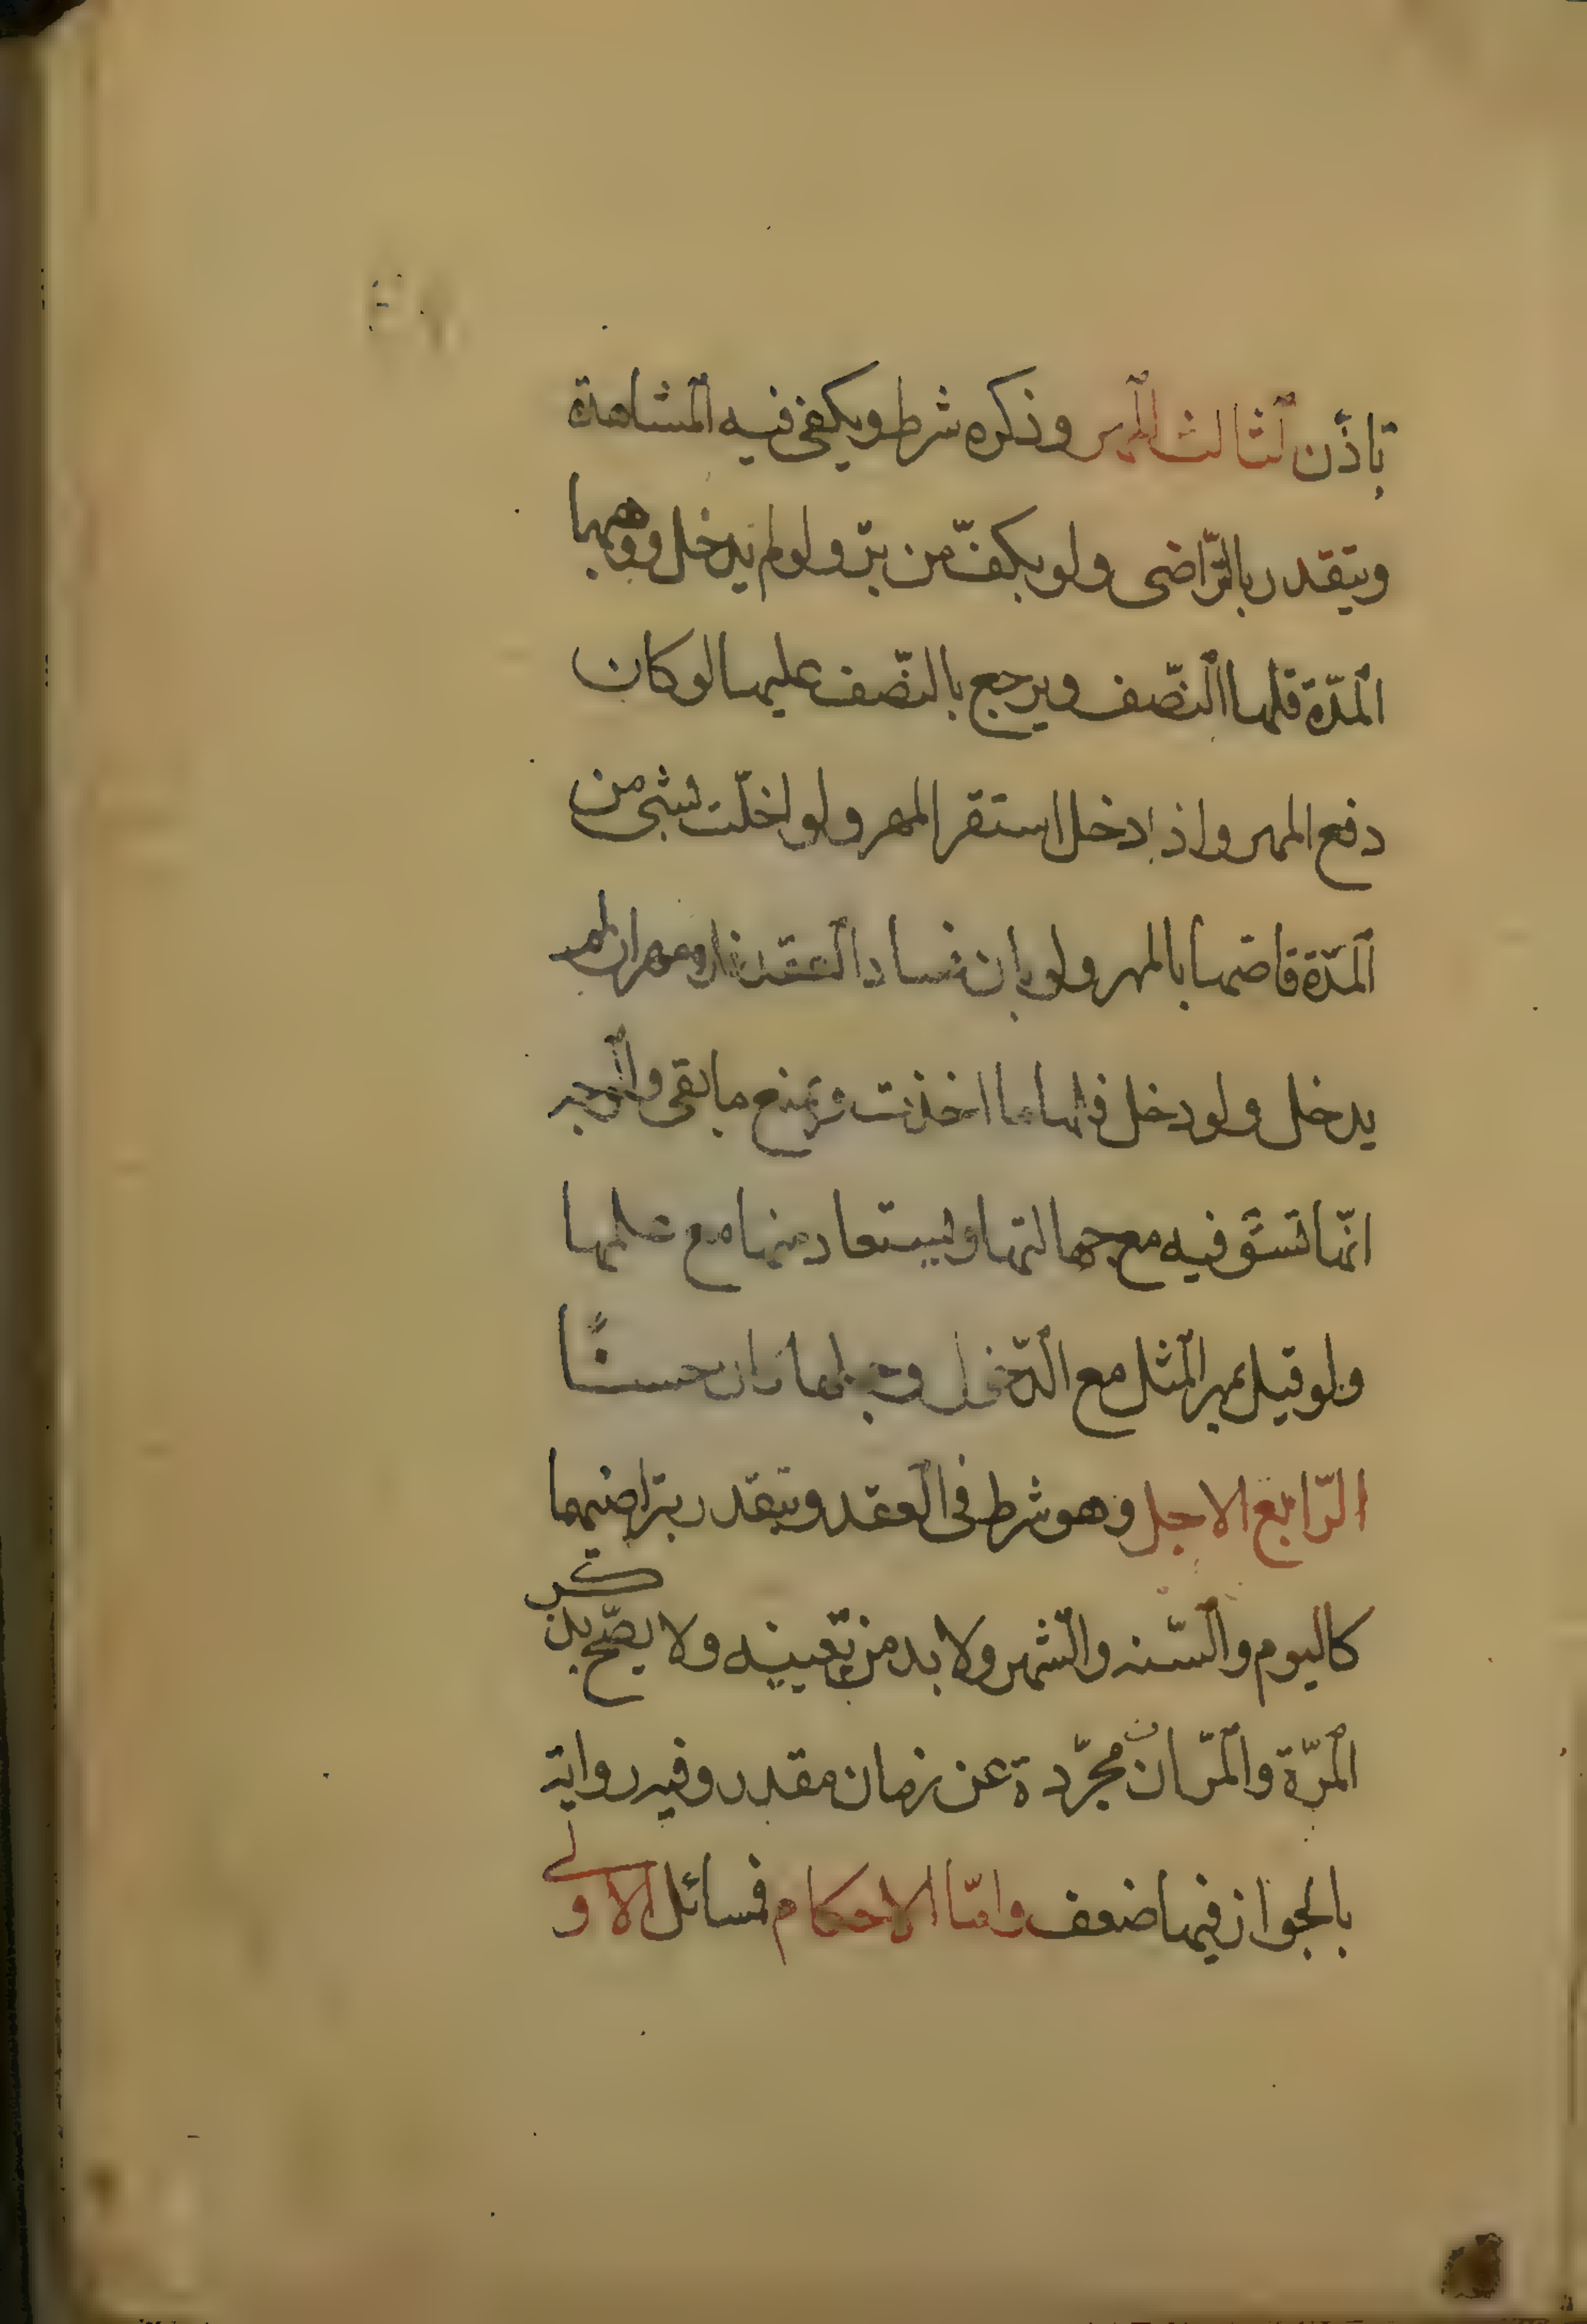 تاذن الثالث المهر وذكره شرط ويكفى فيه المشاهدة
ويتقدر بالتراضى ولو بكفّ من برّ ولو لم يدخل ووهبها
المدّة فلها النّصف ويرجع بالنّصف عليها لو كان
دفع المهر واذا دخل استقر المهر ولو اخلّت بشىء من
المدّة قاصّها بالمهر ولو بان فساد العقد فلا مهر ان لم
يدخل ولو دخل فلها ما اخذت وتمنع ما بقى والوجه
انّها تستوفيه مع جهالتها ويستعاد منها مع علمها
ولو قيل بمهر المثل مع الدّخول وجهلها كان حسنًا
الرّابع الاجل وهو شرط فى العقد ويتقدر بتراضيهما
كاليوم والسّنه والشهر ولا بد من تعيينه ولا يصّح بذكر
المرّة والمرّتان مجرّدة عن زمان مقدر وفيه رواية
بالجواز فيها ضعف وامّا الاحكام فمسائل الاولى